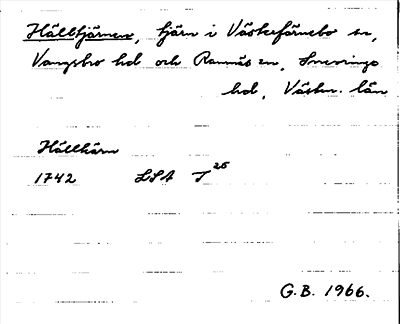 Hälltjärnen, tjärn i Västerfärnebo sn,
Vangsbro hd och Ramnäs sn, Snevringe
hd, Västm. län
Hälltiärn
1742 LSA T 25
G.B. 1966.